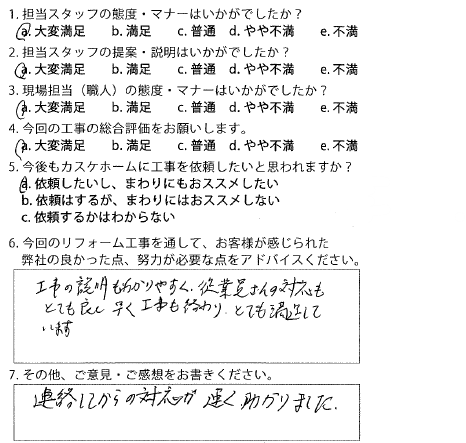 1. 担当スタッフの態度・マナーはいかがでしたか?
a. 大変満足 b. 満足 c. 普通 d. やや不満 e. 不満
2. 担当スタッフの提案・説明はいかがでしたか?
a. 大変満足 b. 満足 c. 普通 d. やや不満 e. 不満
3. 現場担当(職人)の態度・マナーはいかがでしたか?
a. 大変満足 b. 満足 c. 普通 d. やや不満 e. 不満
4. 今回の工事の総合評価をお願いします。
a. 大変満足 b. 満足 c. 普通 d. やや不満 e. 不満
5. 今後もカスケホームに工事を依頼したいと思われますか?
a. 依頼したいし、まわりにもおススメしたい
b. 依頼はするが、まわりにはおススメしない
c. 依頼するかはわからない
6. 今回のリフォーム工事を通して、お客様が感じられた
弊社の良かった点、努力が必要な点をアドバイスください。
工事の説明もわかりやすく、従業員さんの対応も
とても良し 早く工事も終わり、とても満足して
います
7. その他、ご意見・ご感想をお書きください。
連絡してからの対応が速く助かりました.